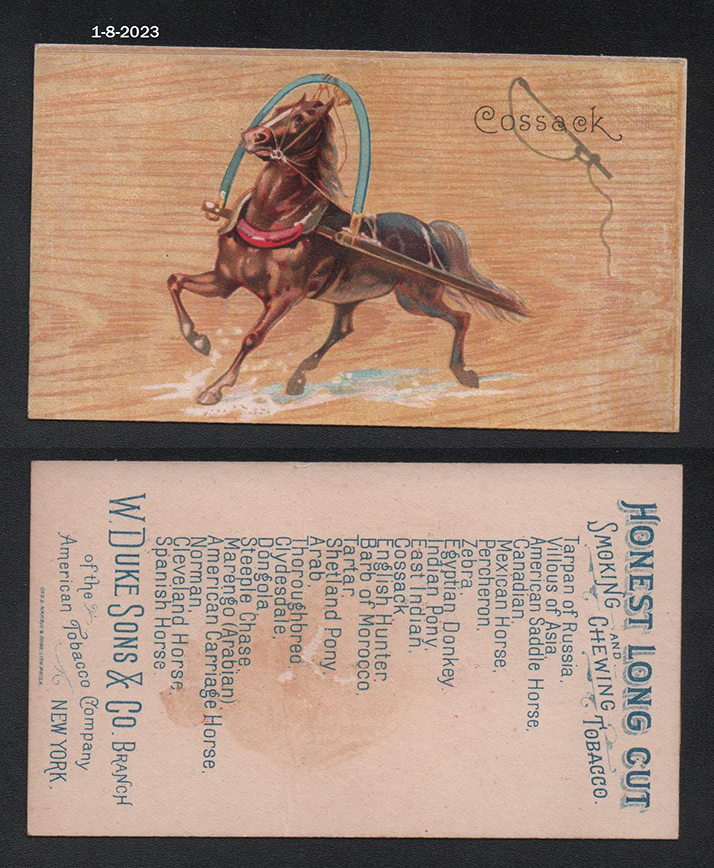 1-8-2023
Cossack
HONEST LONG CUT
SMOKING AND CHEWING TOBACCO.
Tarpan of Russia.
Villous of Asia,
American Saddle Horse,
Canadian,
Mexican Horse,
Percheron.
Zebra.
Egyptian Donkey.
Indian Pony.
East Indian.
Cossack
English Hunter,
Barb of Morocco.
Tartar.
Shetland Pony.
Arab.
Thoroughbred
Clydesdale,
Dongola,
Steeple Chase,
Marengo (Arabian)
American Carriage Horse,
Norman,
Cleveland Horse
Spanish Horse.
W. DUKE SONS & CO. BRANCH
of the
American Tobacco Company
NEW YORK.